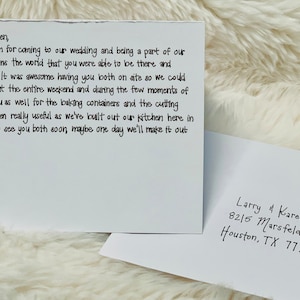 en,
h for coming to our wedding and being a part of our
ns the world that you were able to be there and
It was awesome having you both on site so we could
t the entire weekend and during the few moments of
u as well for the baking containers and the cutting
en really useful as we've built out our kitchen here in
see you both soon, maybe one day we'll make it out
Larry & Kare
8215 Marsfel
Houston, TX 77